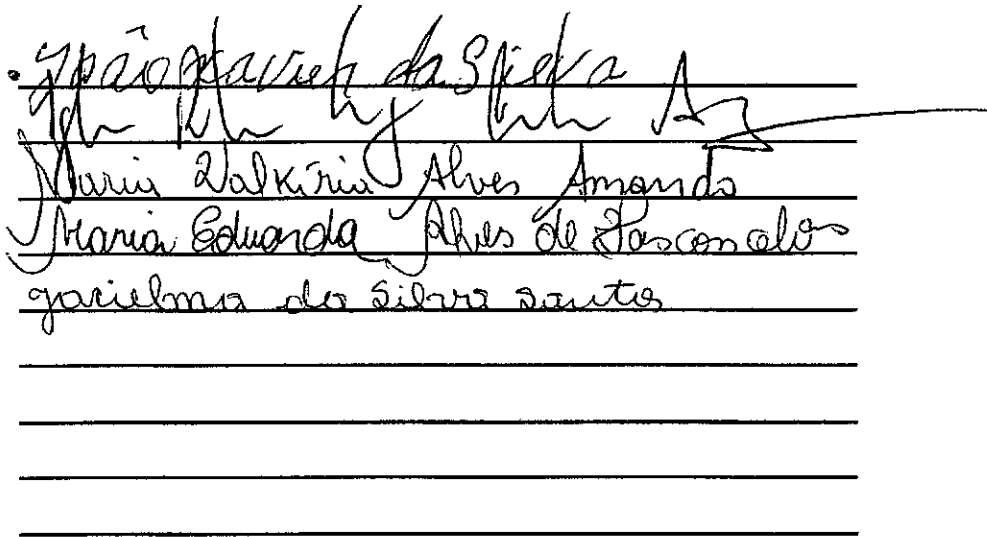 João Xavier da Silva
Maria Valkíria Alves Amando
Maria Eduarda Alves de Vasconcelos
Jacielma da Silva Santos